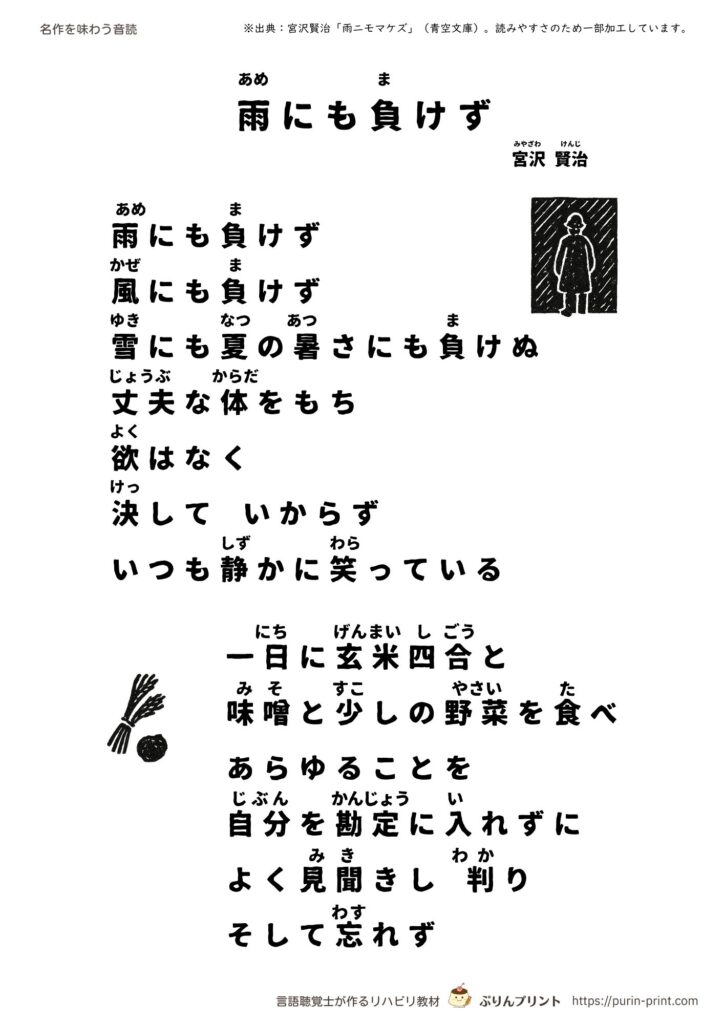 名作を味わう音読
※出典：宮沢賢治「雨ニモマケズ」（青空文庫）。読みやすさのため一部加工しています。
あめ ま
雨にも負けず
みやざわ けんじ
宮沢 賢治
あめ ま
雨にも負けず
かぜ ま
風にも負けず
ゆき なつ あつ ま
雪にも夏の暑さにも負けぬ
じょうぶ からだ
丈夫な体をもち
よく
欲はなく
けっ
決して いからず
しず わら
いつも静かに笑っている
にち げんまい し ごう
一日に玄米四合と
み そ すこ やさい た
味噌と少しの野菜を食べ
あらゆることを
じぶん かんじょう い
自分を勘定に入れずに
み き わ か
よく見聞きし 判り
わす
そして忘れず
言語聴覚士が作るリハビリ教材 ぷりんプリント https://purin-print.com